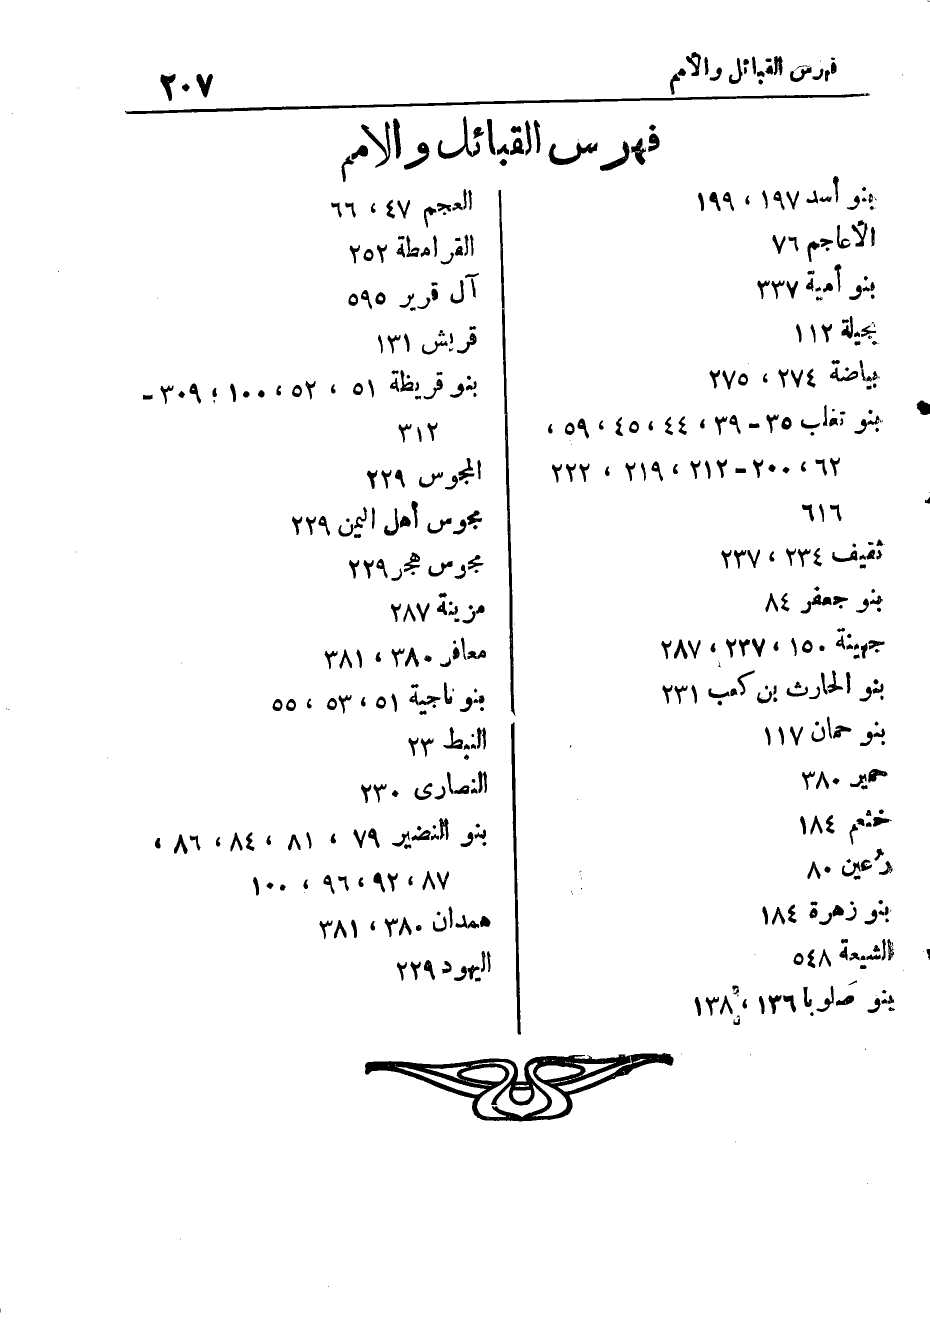 فهرس القبائل والأمم
٢٠٧
فهرس القبائل والامم
بنو أسد ١٩٧ ، ١٩٩
الأعاجم ٧٦
بنو أمية ٣٣٧
بجيلة ١١٢
بياضة ٢٧٤ ، ٢٧٥
بنو تغلب ٣٥ - ٣٩ ، ٤٤ ، ٤٥ ، ٥٩ ،
٦٢ ، ٢٠٠ - ٢١٢ ، ٢١٩ ، ٢٢٢
٦١٦
ثقيف ٢٣٤ ، ٢٣٧
بنو جعفر ٨٤
جهينة ١٥٠ ، ٢٣٧ ، ٢٨٧
بنو الحارث بن كعب ٢٣١
بنو حمان ١١٧
حمير ٣٨٠
خثعم ١٨٤
رُعين ٨٠
بنو زهرة ١٨٤
الشيعة ٥٤٨
بنو صَلوبا ١٣٦ ، ١٣٨
العجم ٤٧ ، ٦٦
القرامطة ٢٥٢
آل قرير ٥٩٥
قريش ١٣١
بنو قريظة ٥١ ، ٥٢ ، ١٠٠ ؛ ٣٠٩ -
٣١٢
المجوس ٢٢٩
مجوس أهل اليمن ٢٢٩
مجوس هجر ٢٢٩
مزينة ٢٨٧
معافر ٣٨٠ ، ٣٨١
بنو ناجية ٥١ ، ٥٣ ، ٥٥
النبط ٢٣
النصارى ٢٣٠
بنو النضير ٧٩ ، ٨١ ، ٨٤ ، ٨٦ ،
٨٧ ، ٩٢ ، ٩٦ ، ١٠٠
همدان ٣٨٠ ، ٣٨١
اليهود ٢٢٩